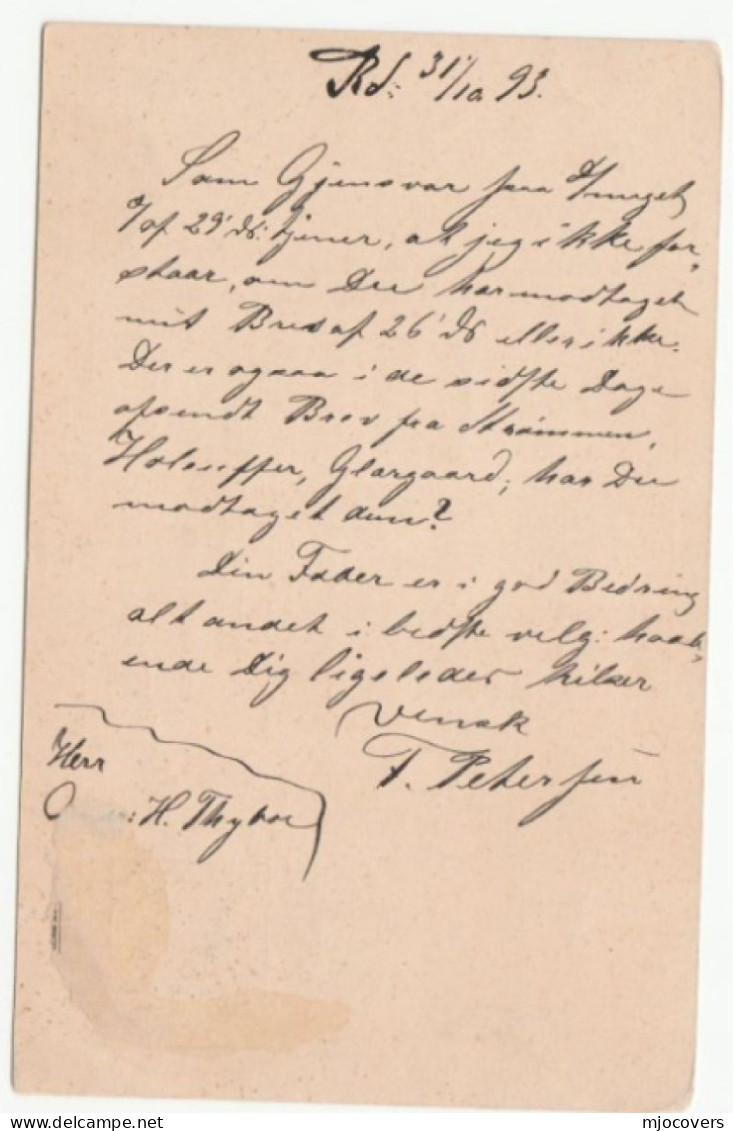 Rd: 31/10 93.
Som Gjensvar paa
af 29' ds: tjener, at jeg ikke for-
staar, om Du har modtaget
mit Brev af 26' ds eller ikke.
Der er ogsaa i de sidste Dage
afsendt Brev fra Strømmen,
Glargaard; har Du
modtaget dem?
Din Fader er i god Bedring
alt andet i bedste velg: haab-
ende Dig ligeledes hilser
vensk
F. Petersen
Herr
H. Thyboe
mjocovers